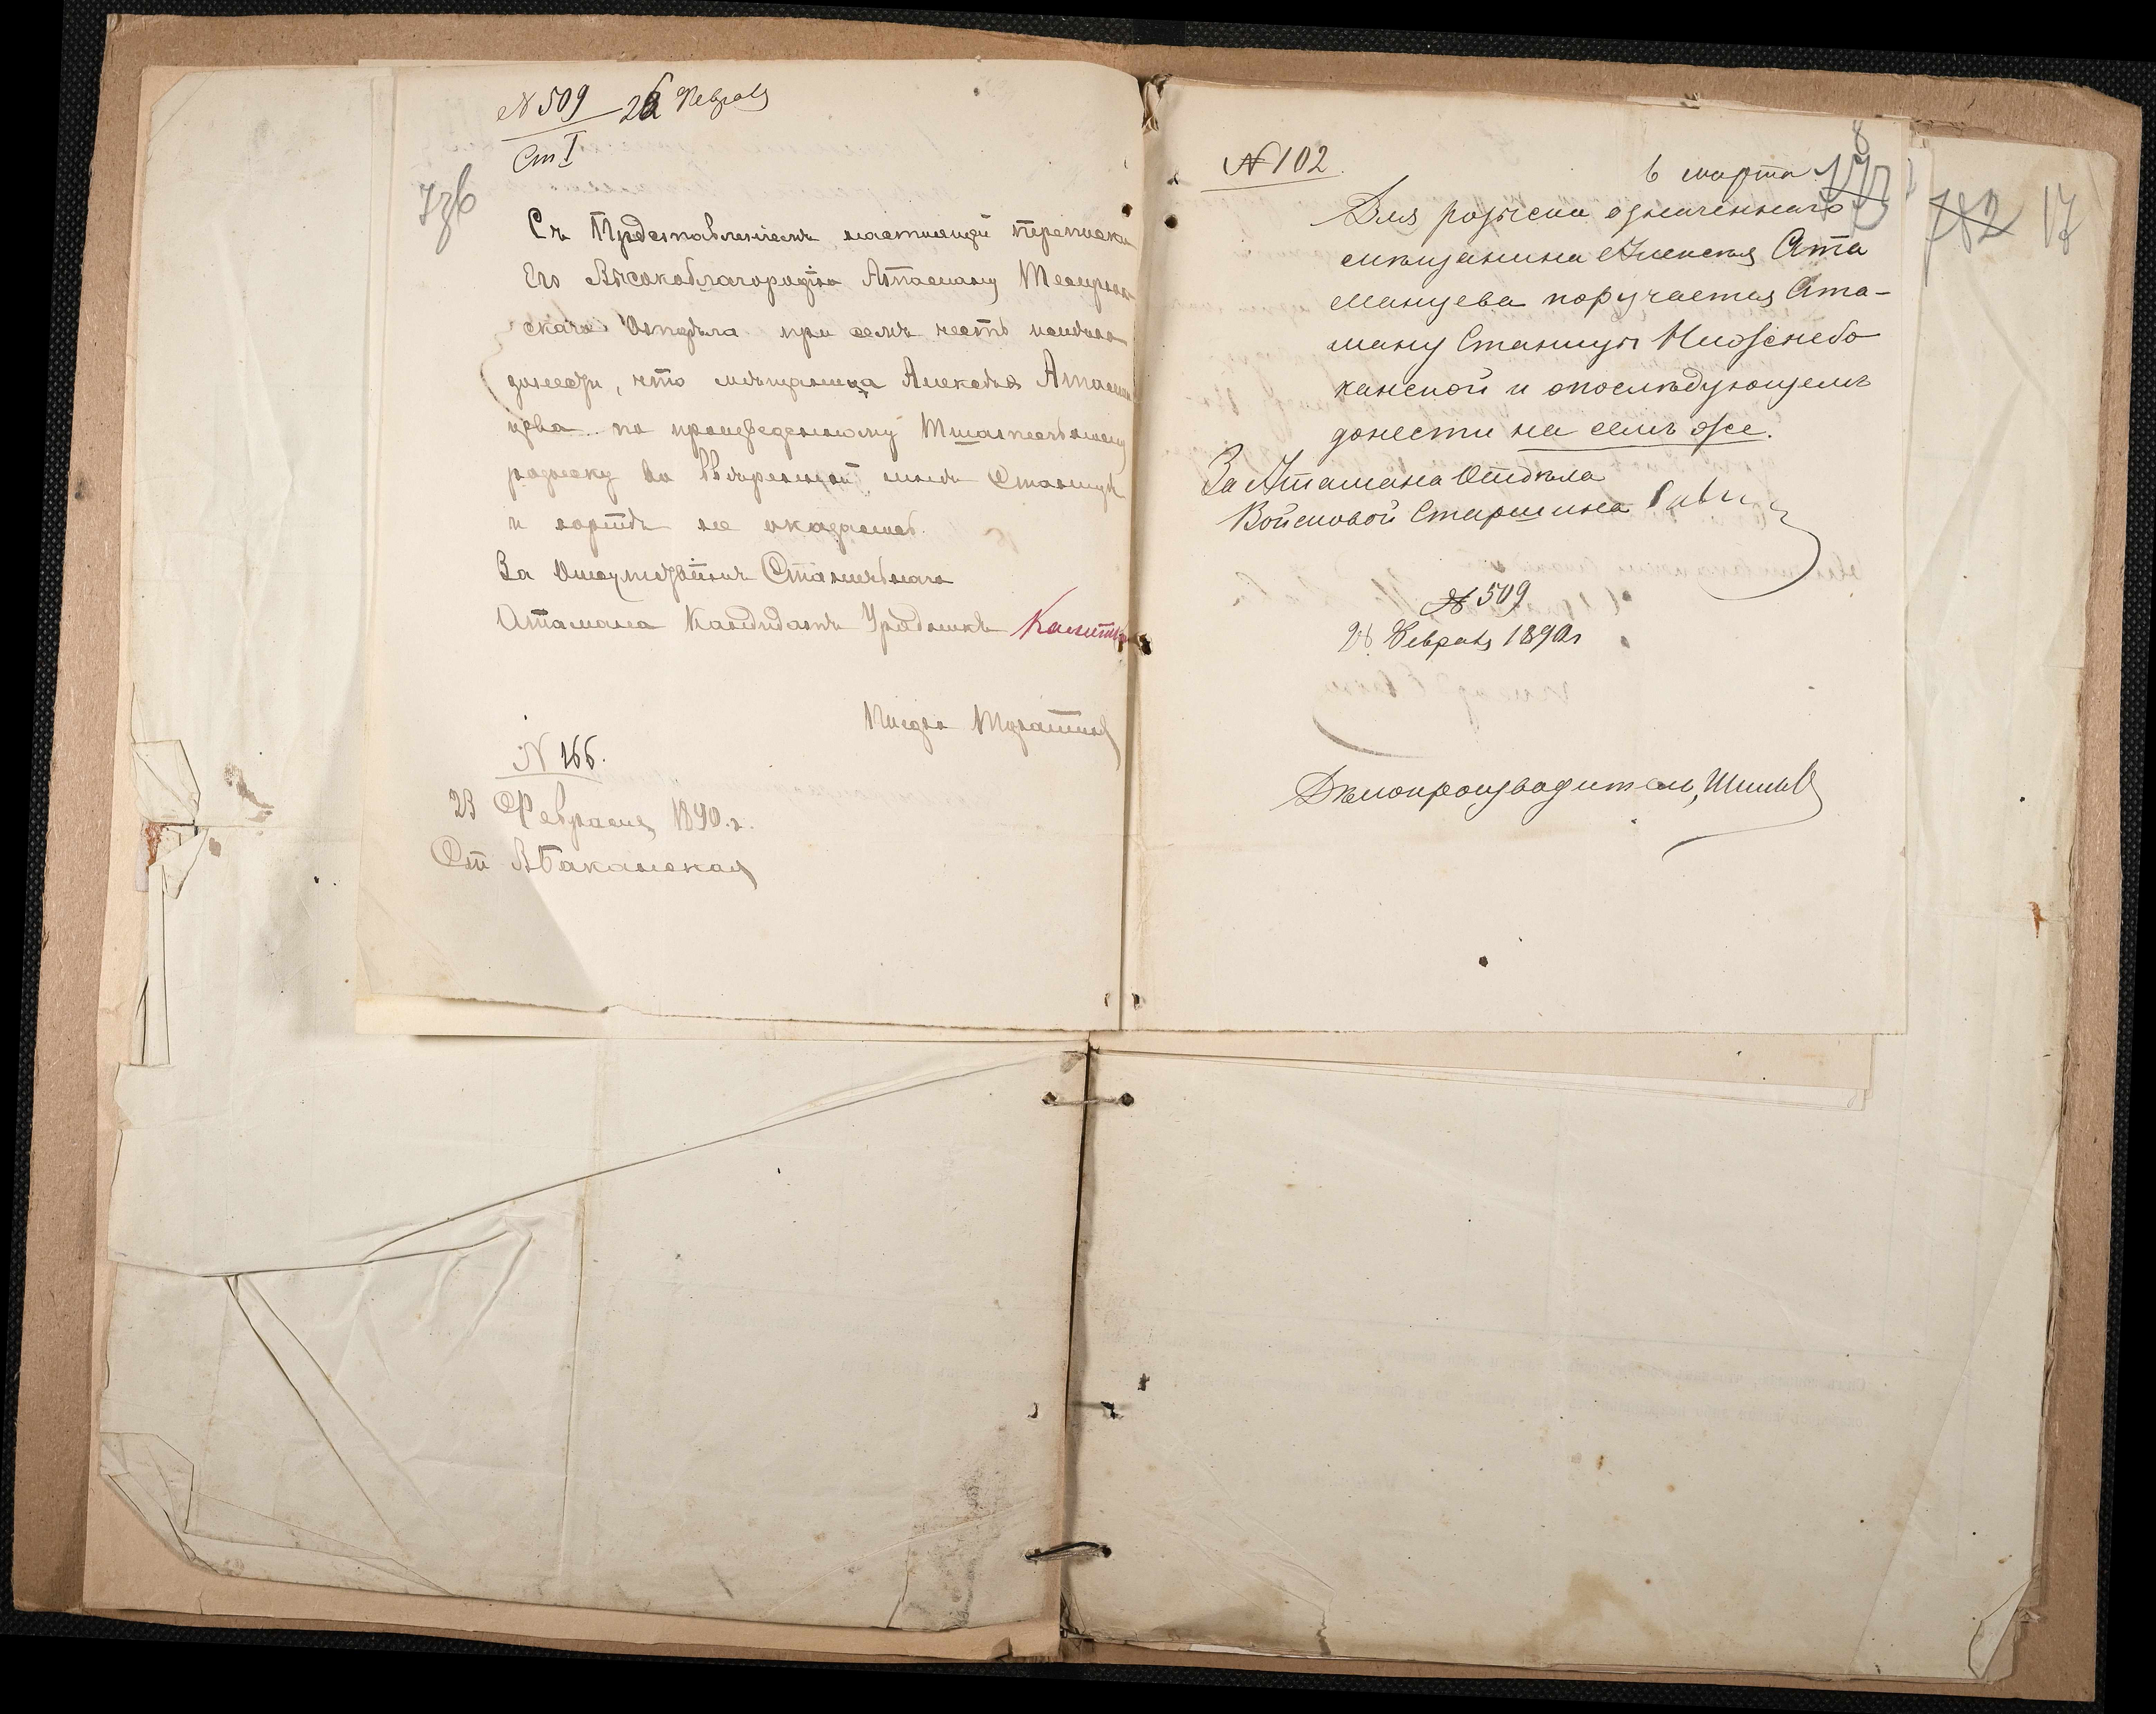 № 509 26 Февраля
Ст I
736
Съ Представленіемъ настоящей переписки
Его Высокоблагородію Атаману Темрюк
скаго Отдѣла при семъ честь имѣю
донести, что мѣщанина Алексѣя Атаман
цева по произведенному тщательному
розыску во ввѣренной мнѣ Станицѣ
и юртѣ не оказалось.
За Отсутствіемъ Станичнаго
Атамана Кандидатъ Урядникъ
Писарь
№ 166.
23 Февраля 1890 г.
Ст Абаканская
8
№ 102
6 марта
Для розыска означеннаго
мѣщанина Алексѣя Ата
манцева поручается Ата-
ману Станицы Нижнеба
канской и опослѣдующемъ
донести на семъ же.
За Атамана Отдѣла
Войсковой Старшина
№ 509
26 Февраля 1890 г
Дѣлопроизводитель,
782 17